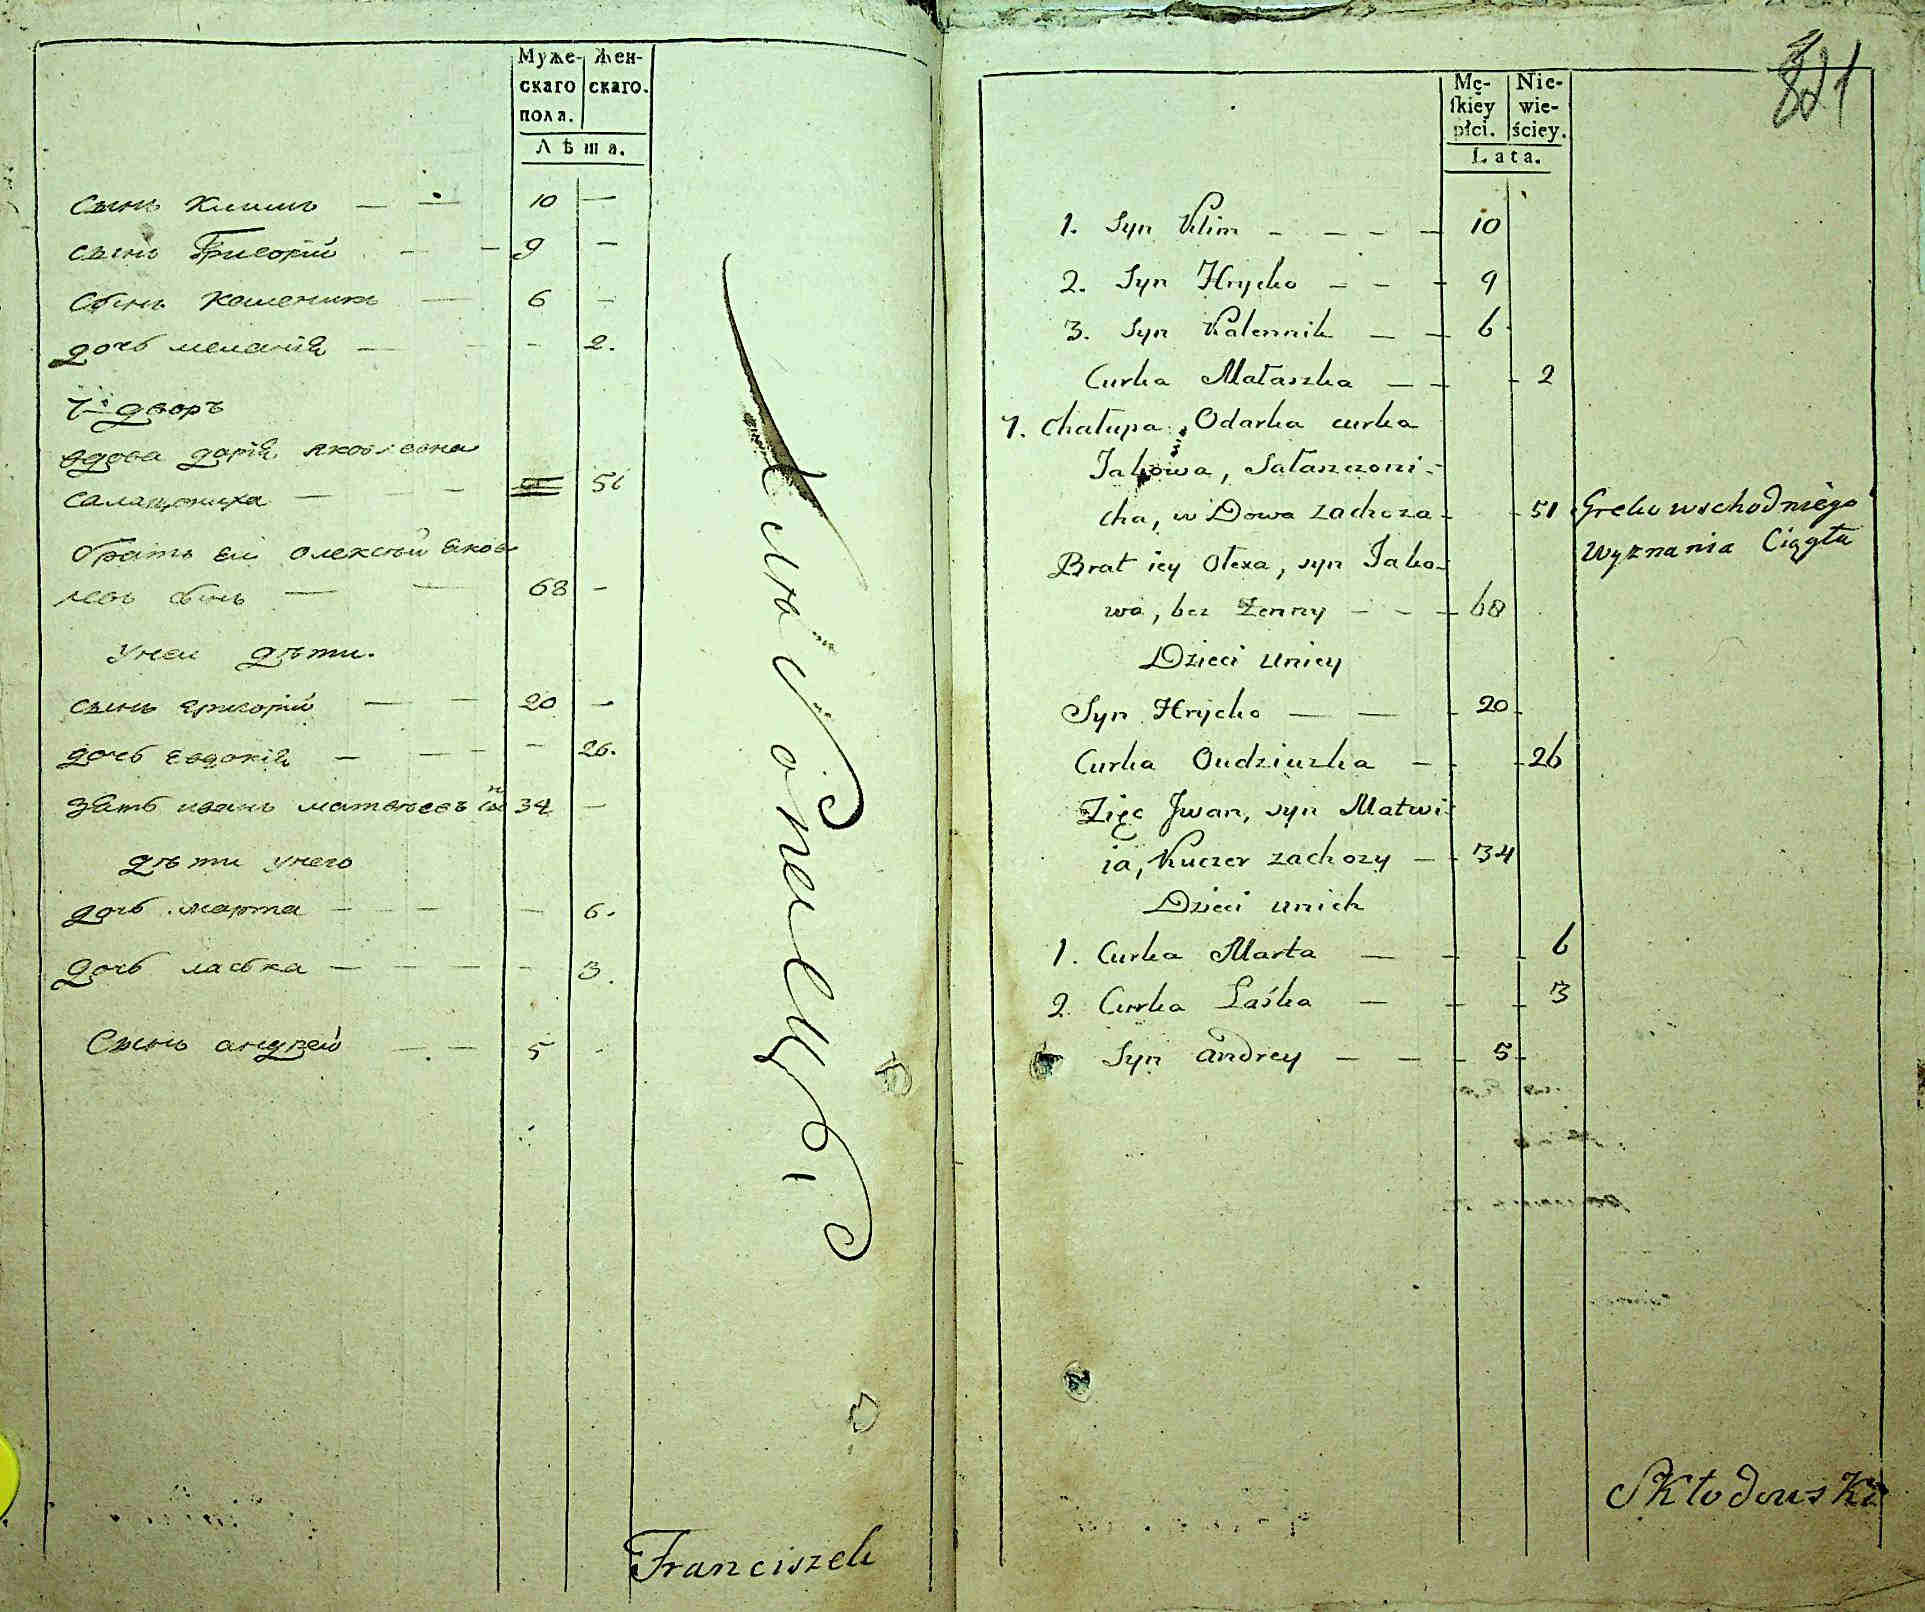 Муже-
скаго
пола.
Жен-
скаго.
Лѣта.
сынъ Климъ — — 10 —
сынъ Григорій — — 9 —
сынъ Каленикъ — 6 —
дочь меланія — — — 2.
7й дворъ
вдова дарія яковлевна
салащониха — — — 51
братъ ей олексѣй яков
левъ сынъ — — 68 —
унеи дѣти.
сынъ григорій — — 20 —
дочь евдокія — — — — 26.
зять иванъ матвѣевъ 34 —
дѣти унего
дочь марта — — — — 6.
дочь ласька — — — — — 3.
Сынъ андрей — — 5
Franciszek
821
Mę-
skiey
płci.
Nie-
wie-
ściey.
Lata.
1. Syn Klim — — — — 10
2. Syn Hrycko — — — 9
3. Syn Kalennik — — 6
Curka Małaszka — — — 2
7. Chałupa Odarka curka
Jakowa, Sałaszczoni-
cha, wDowa zachoza — — 51 Greko wschodniego
Wyznania Ciągła
Brat iey Ołexa, syn Jako-
wa, bez Zenny — — — 68
Dzieci Uniey
Syn Hrycko — — — 20 —
Curka Oudziuszka — — — 26
Zięc Jwan, syn Matwi-
ia, Kuczer zachozy — — 34
Dzieci unich
1. Curka Marta — — — 6
2. Curka Łaśka — — — 3
Syn andrey — — — 5 —
SKłodowski